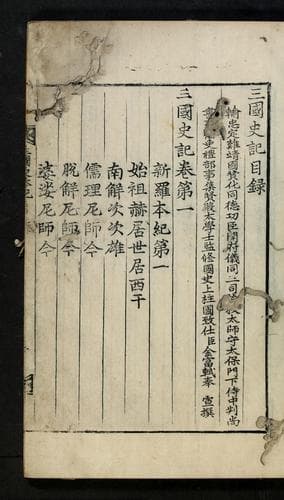 三國史記目錄
輸忠定難靖國贊化同德功臣開府儀同三司 太師守太保門下侍中判尚
書 禮部事集賢殿太學士監修國史上柱國致仕臣金富軾奉 宣撰
三國史記卷第一
新羅本紀第一
始祖赫居世居西干
南解次次雄
儒理尼師今
脫解尼師今
婆娑尼師今